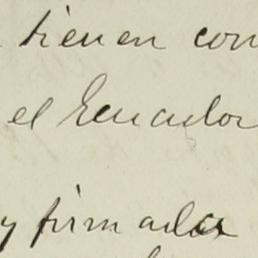 tienen con
el Ecuador
y firmada